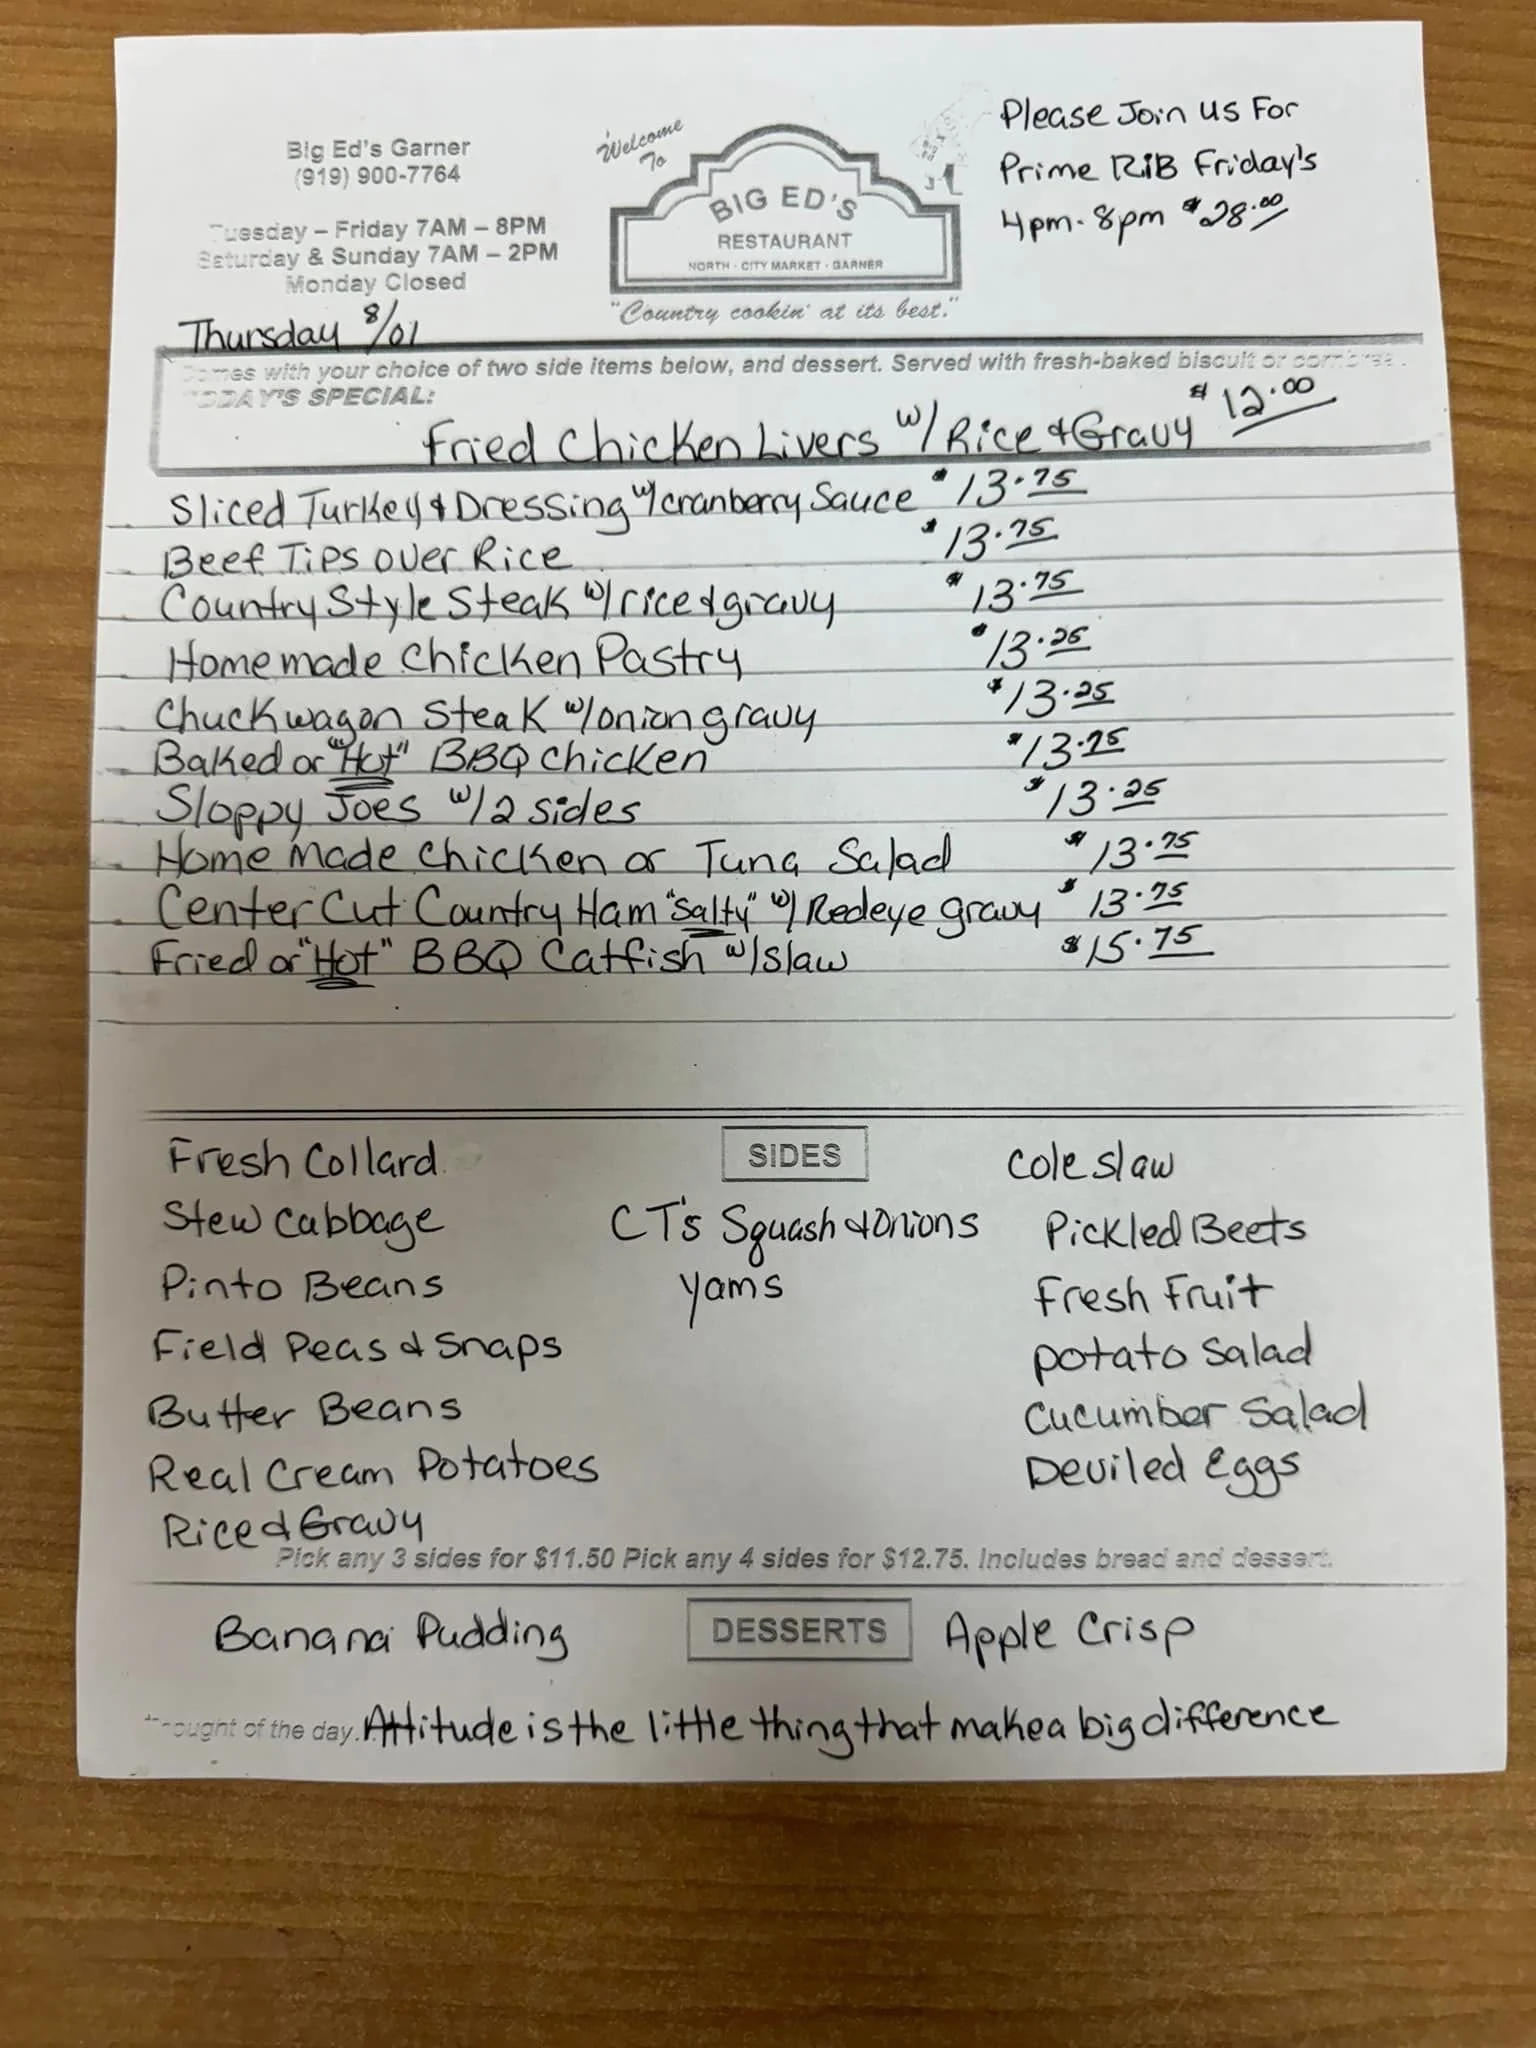 Big Ed's Garner
(919) 900-7764
Tuesday – Friday 7AM – 8PM
Saturday & Sunday 7AM – 2PM
Monday Closed
Welcome
To
BIG ED'S
RESTAURANT
NORTH · CITY MARKET · GARNER
"Country cookin' at its best."
Please Join us For
Prime RIB Friday's
4pm-8pm $28.00
Thursday 8/01
Comes with your choice of two side items below, and dessert. Served with fresh-baked biscuit or cornbread.
TODAY'S SPECIAL:
Fried Chicken Livers w/ Rice & Gravy $12.00
Sliced Turkey & Dressing w/ cranberry Sauce $13.75
Beef Tips over Rice $13.75
Country Style Steak w/ rice & gravy $13.75
Homemade Chicken Pastry $13.25
Chuckwagon Steak w/ onion gravy $13.25
Baked or "Hot" BBQ Chicken $13.75
Sloppy Joes w/ 2 sides $13.25
Home Made Chicken or Tuna Salad $13.75
Center Cut Country Ham "Salty" w/ Redeye gravy $13.75
Fried or "Hot" BBQ Catfish w/ slaw $15.75
SIDES
Fresh Collard
Stew Cabbage
Pinto Beans
Field Peas & Snaps
Butter Beans
Real Cream Potatoes
Rice & Gravy
CT's Squash & Onions
Yams
Cole slaw
Pickled Beets
Fresh Fruit
Potato Salad
Cucumber Salad
Deviled Eggs
Pick any 3 sides for $11.50 Pick any 4 sides for $12.75. Includes bread and dessert.
DESSERTS
Banana Pudding
Apple Crisp
Thought of the day. Attitude is the little thing that make a big difference